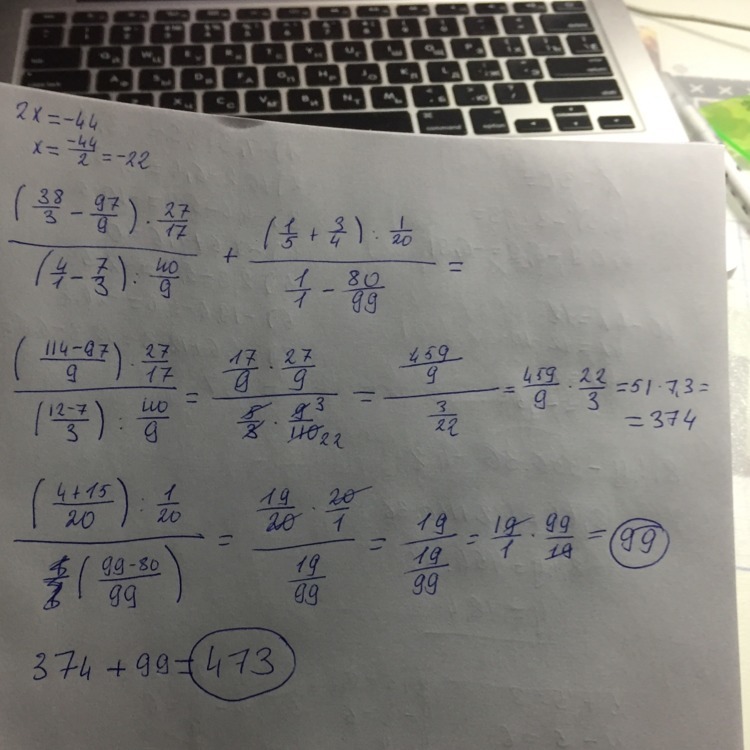 command option
2x = -44
x = -44/2 = -22
((38/3 - 97/9) · 27/17) / ((4/1 - 7/3) : 110/9) + ((1/5 + 3/4) : 1/20) / (1/1 - 80/99) =
(((114-97)/9) · 27/17) / (((12-7)/3) : 110/9) = (17/9 · 27/9) / (5/3 · 9 3/110 22) = (459/9) / (3/22) = 459/9 · 22/3 = 51 · 7,3 =
= 374
(((4+15)/20) : 1/20) / ((99-80)/99) = (19/20 · 20/1) / (19/99) = 19 / (19/99) = 19/1 · 99/19 = 99
374 + 99 = 473